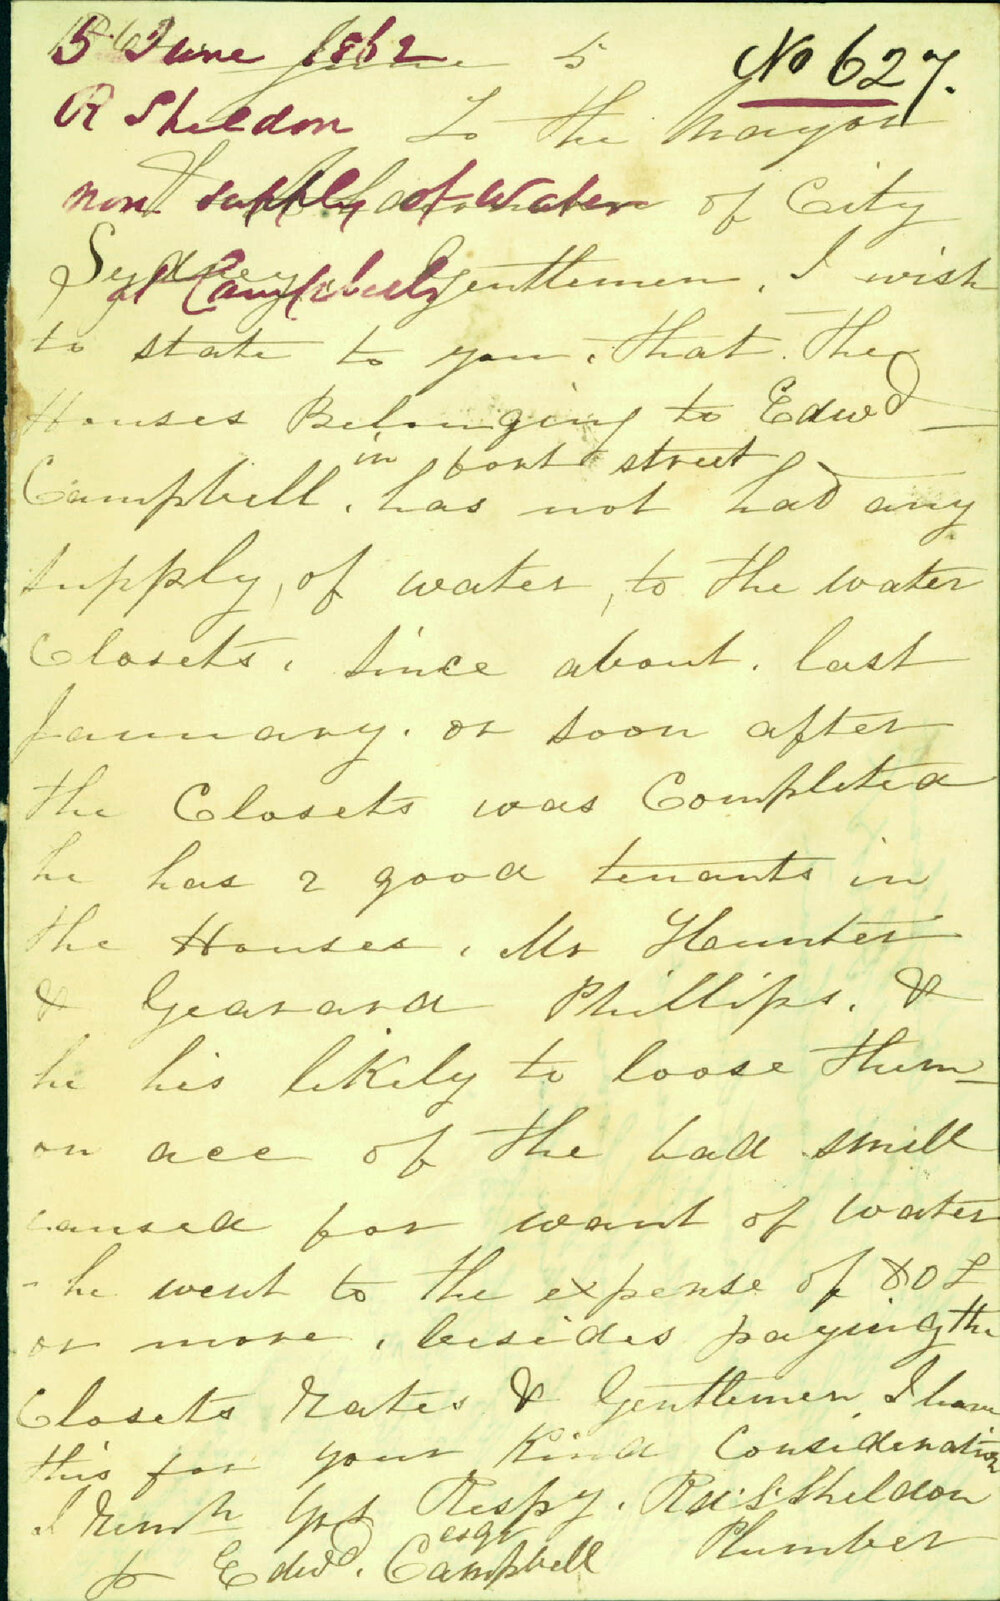 5 June 1862
No 627.
R Sheldon
non supply of Water
at Campbells
June 5
To the Mayor
of City
Sydney Gentlemen, I wish
to state to you, that the
Houses Belonging to Edwd
Campbell, in fort street has not had any
supply, of water, to the water
Closets, since about last
January. or soon after
the Closets was Completed
he has 2 good tenants in
the Houses, Mr Hunter
& Gearard Phillips. &
he his likely to loose them
on acc of the bad smell
caused for want of water
- he went to the expense of 80£
or more, besides paying the
Closets Rates & Gentlemen, I leave
this for your Kind Consideration
I Remn Yrs Respy. Rd. S. Sheldon
Plumber
pr Edwd. Campbell esqr